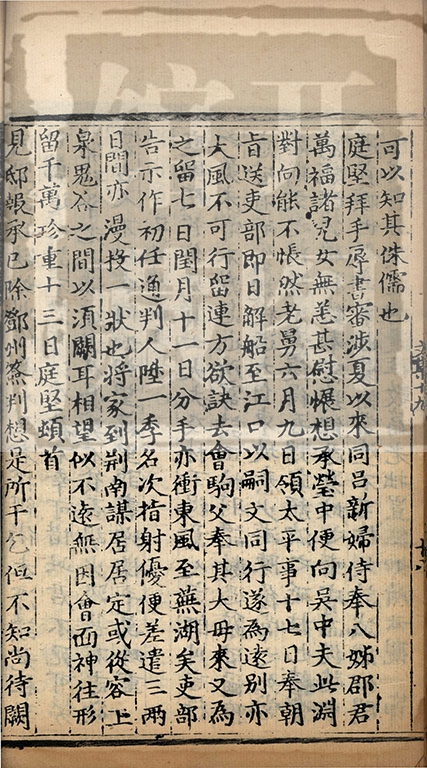 可以知其侏儒也
庭堅拜手辱書審涉夏以來同呂新婦侍奉八姊郡君
萬福諸兒女無恙甚慰懸想承瑩中便向吳中夫此淵
對向能不悵然老舅六月九日領太平事十七日奉朝
旨送吏部即日解船至江口以嗣文同行遂為遠別亦
大風不可行留連方欲訣去會駒父奉其大母來又為
之留七日閏月十一日分手亦衝東風至蕪湖矣吏部
告示作初任通判人陞一季名次指射優便差遣三兩
日間亦漫投一狀也將家到荆南謀居居定或從容上
泉鬼谷之間以須闕耳相望似不遠無因會面神往形
留千萬珍重十三日庭堅頓首
見邸報承已除鄧州僉判想是所干乞但不知尚待闕